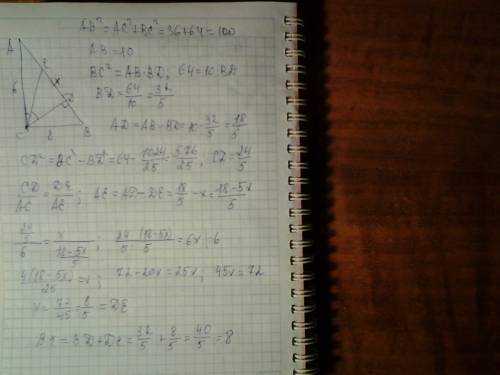 AB² = AC² + BC² = 36 + 64 = 100
AB = 10
BC² = AB · BD; 64 = 10 · BD
BD = 64/10 = 32/5
AD = AB - BD = 10 - 32/5 = 18/5
CD² = BC² - BD² = 64 - 1024/25 = 576/25, CD = 24/5
CD/AC = DE/AE; AE = AD - DE = 18/5 - x = (18-5x)/5
(24/5)/6 = x/((18-5x)/5); 24/5 (18-5x)/5 = 6x |:6
4(18-5x)/25 = x; 72-20x = 25x; 45x = 72
x = 72/45 = 8/5 = DE
BE = BD + DE = 32/5 + 8/5 = 40/5 = 8
A
E
x
6
D
C
8
B